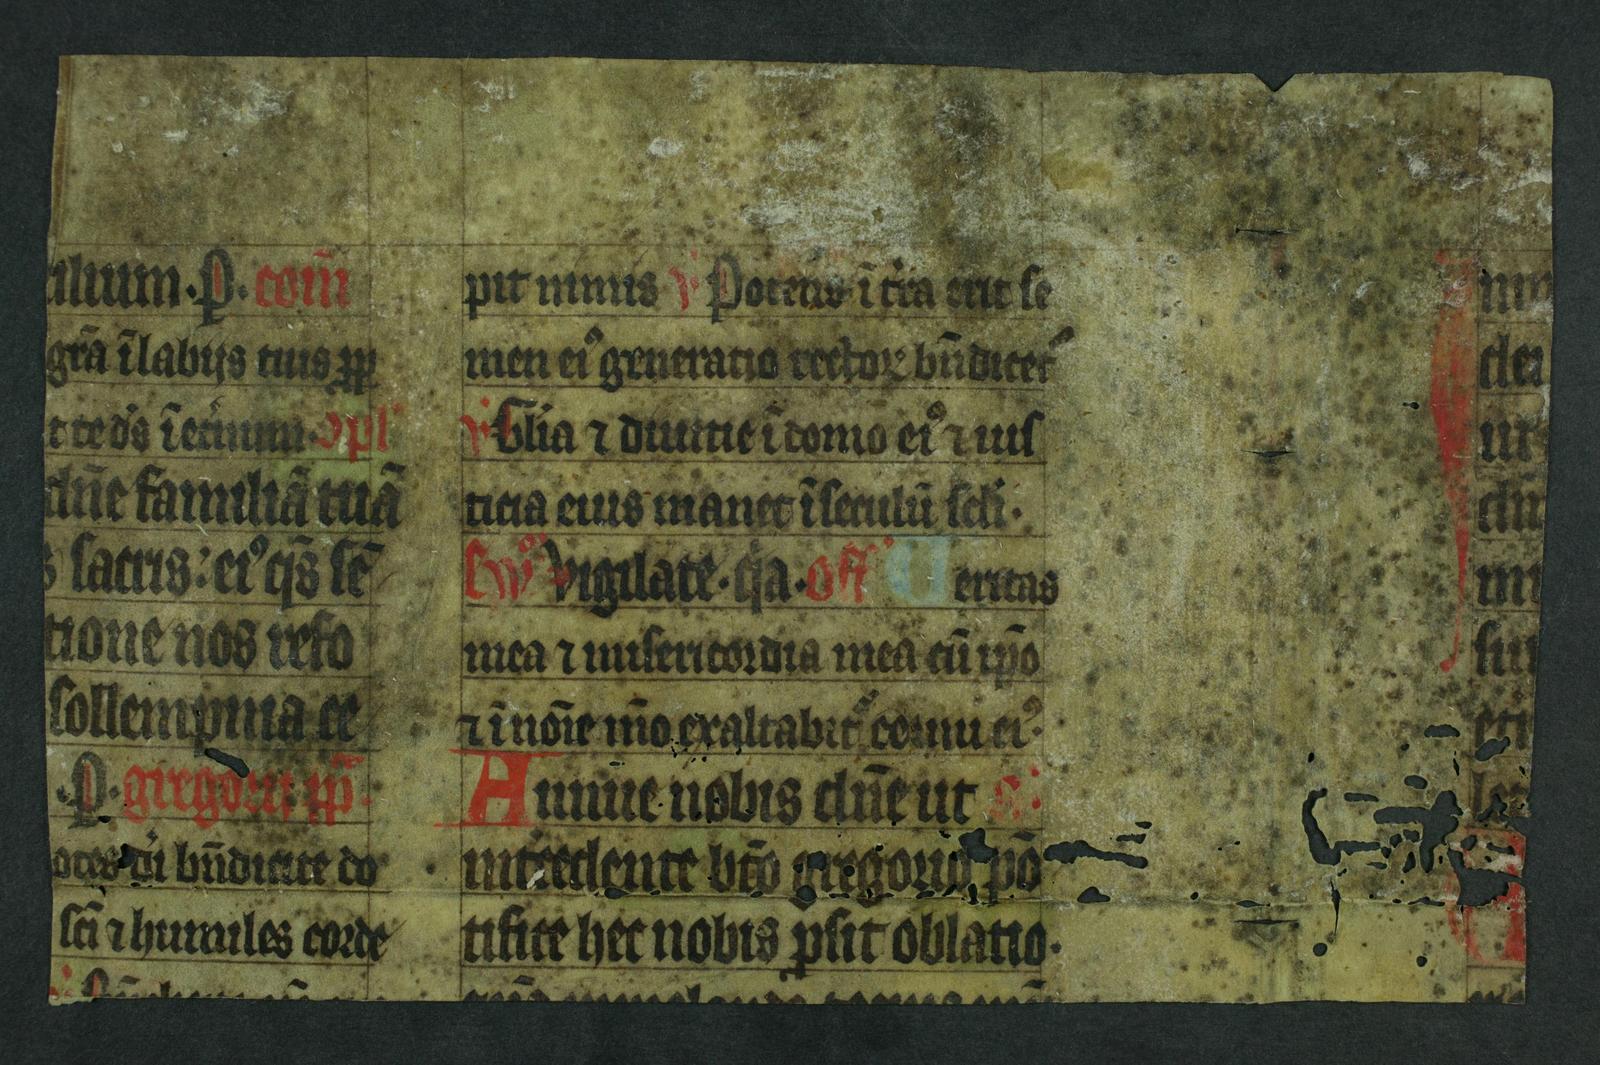 ilium · P · com̄
gr̄a ī labijs tuis ꝓp
t te ds̄ ī et̾num · ꝯpl̾
dn̄e familiā tuā
s sacris : ei⁹ qs̄ sē
tione nos refo
sollempnia ce
· P · gregorii pp̄ ·
otes dn̄i bn̄dicite do
sc̄i ⁊ humiles corde
pit nimis v̾ Potens ī t̾ra erit se
men ei⁹ generatio rectoꝝ bn̄dicet᷑
v̾ Glīa ⁊ diuitie ī domo ei⁹ ⁊ ius
ticia eius manet ī seculū scl̄i ·
Vigilate · q̄a · off̾ Ueritas
mea ⁊ misericordia mea cū ip̄o
⁊ ī noīe m̄o exaltabit᷑ cornu ei⁹ ·
Annue nobis dn̄e ut
int̾cedente bt̄o gregorio pō
tifice hec nobis ꝓsit oblatio ·